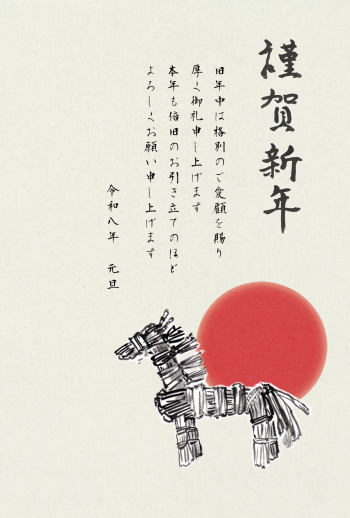 謹賀新年
旧年中は格別のご愛顧を賜り
厚く御礼申し上げます
本年も倍旧のお引き立てのほど
よろしくお願い申し上げます
令和八年 元旦